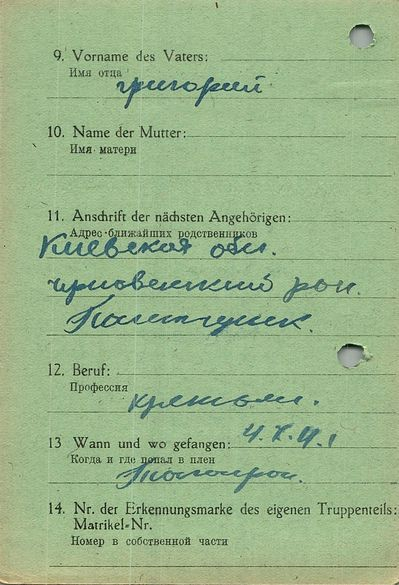 9. Vorname des Vaters:
Имя отца
григорий
10. Name der Mutter:
Имя матери
11. Anschrift der nächsten Angehörigen:
Адрес ближайших родственников
Киевская обл.
рон.
12. Beruf:
Профессия
13 Wann und wo gefangen:
Когда и где попал в плен
14. Nr. der Erkennungsmarke des eigenen Truppenteils:
Matrikel-Nr.
Номер в собственной части